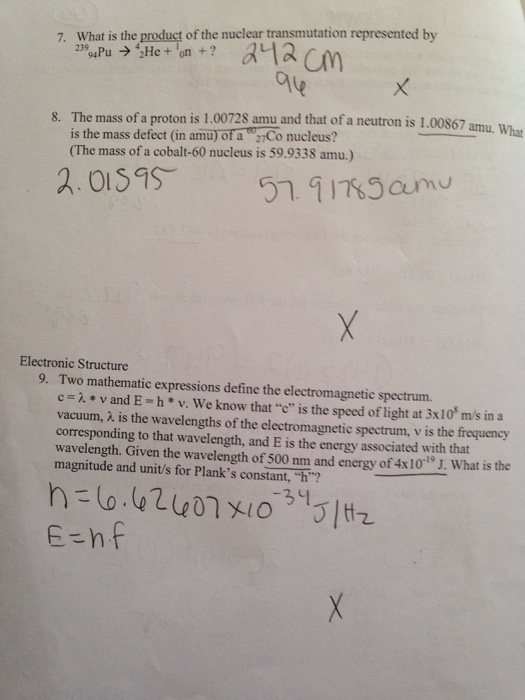 7. What is the product of the nuclear transmutation represented by
²³⁹₉₄Pu → ⁴₂He + ¹₀n + ?
242 Cm
96
X
8. The mass of a proton is 1.00728 amu and that of a neutron is 1.00867 amu. What
is the mass defect (in amu) of a ⁶⁰₂₇Co nucleus?
(The mass of a cobalt-60 nucleus is 59.9338 amu.)
2.01595
57.91785amu
X
Electronic Structure
9. Two mathematic expressions define the electromagnetic spectrum.
c = λ * v and E = h * v. We know that "c" is the speed of light at 3x10⁸ m/s in a
vacuum, λ is the wavelengths of the electromagnetic spectrum, v is the frequency
corresponding to that wavelength, and E is the energy associated with that
wavelength. Given the wavelength of 500 nm and energy of 4x10⁻¹⁹ J. What is the
magnitude and unit/s for Plank's constant, "h"?
h=6.62607x10⁻³⁴J/Hz
E=h·f
X